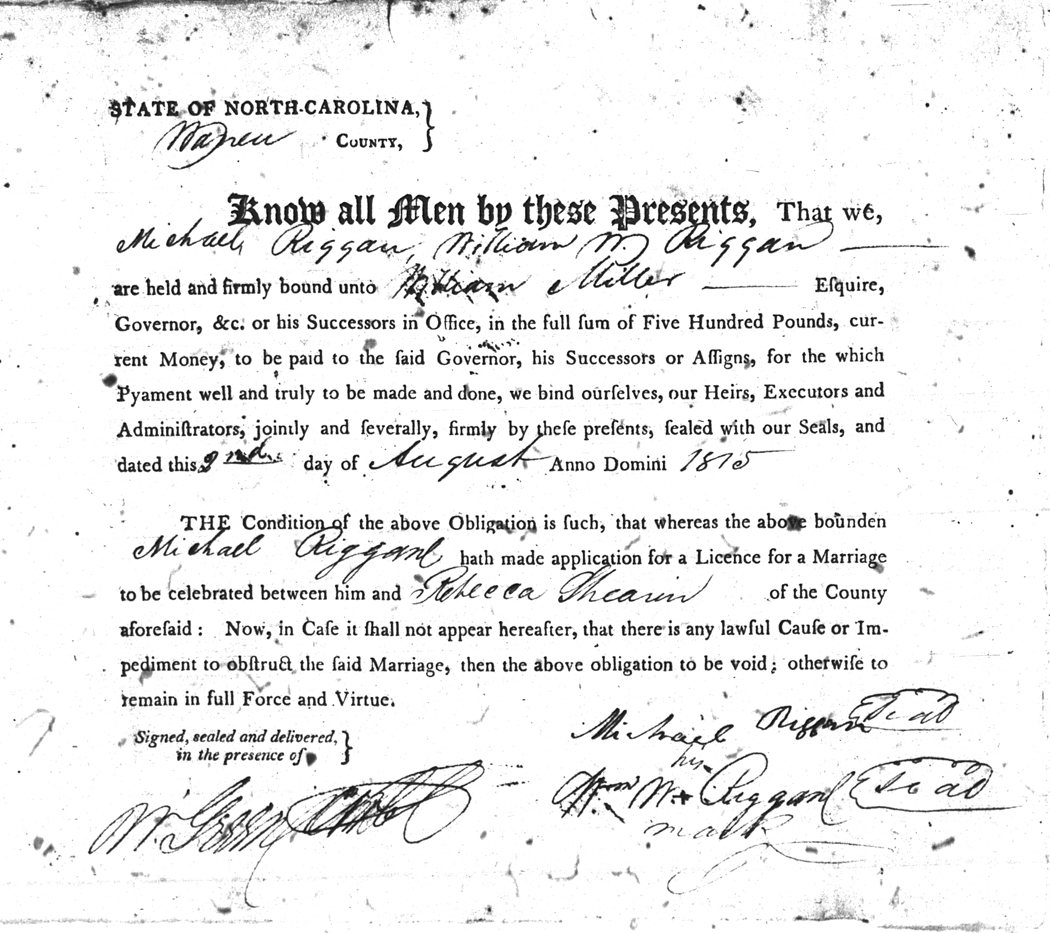 STATE OF NORTH-CAROLINA,}
Warren COUNTY,
Know all Men by these Presents, That we,
Michael Riggan, William W Riggan
are held and firmly bound unto William Miller Eſquire,
Governor, &c. or his Succeſſors in Office, in the full ſum of Five Hundred Pounds, cur-
rent Money, to be paid to the ſaid Governor, his Succeſſors or Aſſigns, for the which
Pyament well and truly to be made and done, we bind ourſelves, our Heirs, Executors and
Adminiſtrators, jointly and ſeverally, firmly by theſe preſents, ſealed with our Seals, and
dated this 2nd day of August Anno Domini 1815
THE Condition of the above Obligation is ſuch, that whereas the above bounden
Michael Riggan hath made application for a Licence for a Marriage
to be celebrated between him and Rebecca Shearin of the County
aforeſaid : Now, in Caſe it ſhall not appear hereafter, that there is any lawful Cauſe or Im-
pediment to obſtruct the ſaid Marriage, then the above obligation to be void ; otherwiſe to
remain in full Force and Virtue.
Signed, sealed and delivered,}
in the presence of
Michael Riggan Seal
his
Wm W + Riggan Seal
mark
Wm Green